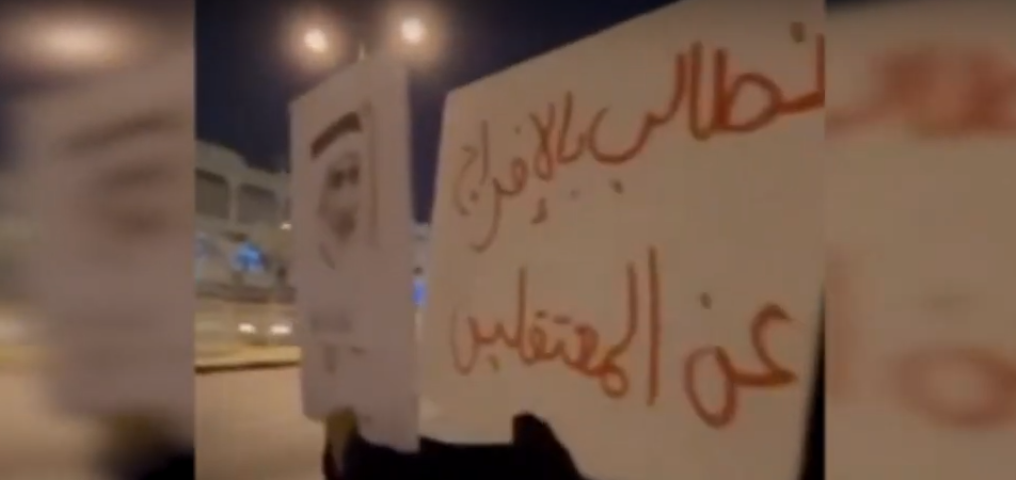 نطالب بالإفراج
عن المعتقلين